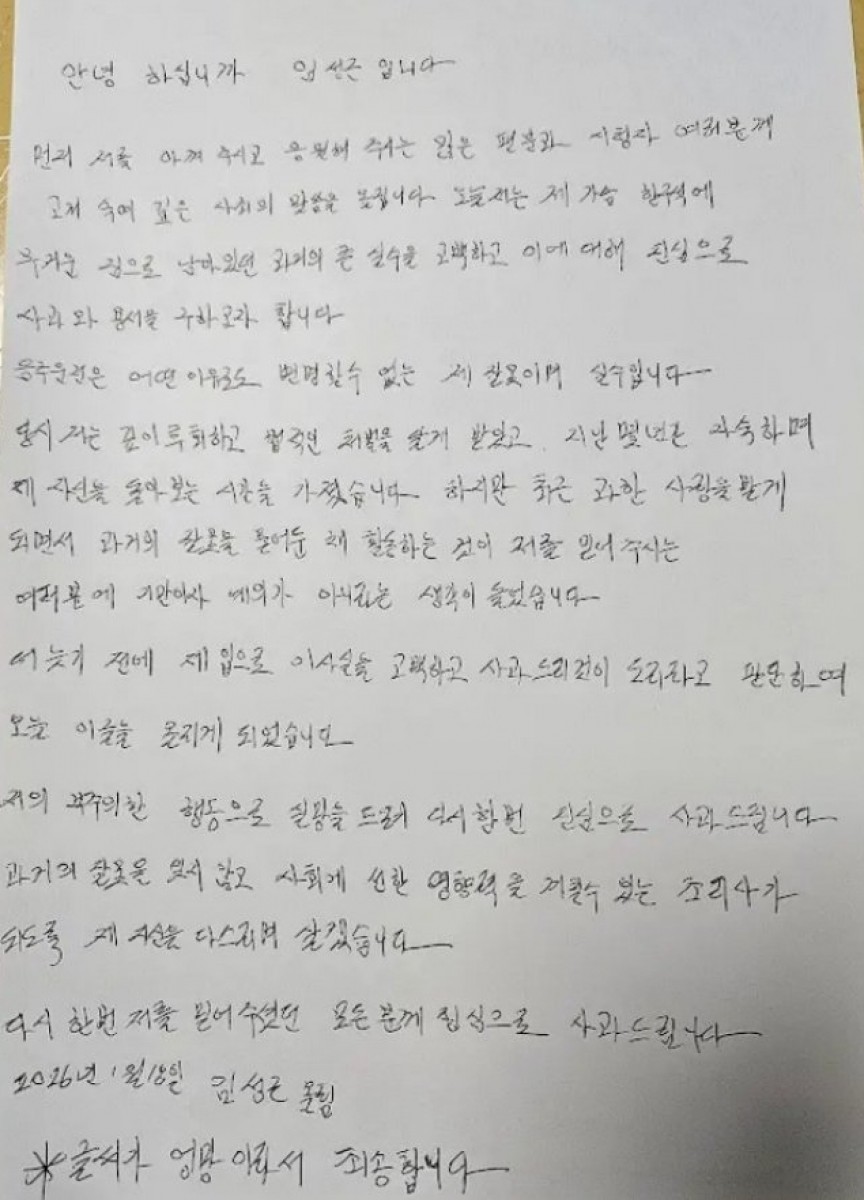 안녕 하십니까 임성근 입니다
먼저 저를 아껴 주시고 응원해 주시는 많은 팬분과 시청자 여러분께
고개 숙여 깊은 사죄의 말씀을 올립니다 오늘 저는 제 가슴 한구석에
무거운 짐으로 남아있던 과거의 큰 실수를 고백하고 이에 대해 진심으로
사과와 용서를 구하고자 합니다
음주운전은 어떤 이유로도 변명할수 없는 제 잘못이며 실수입니다
당시 저는 깊이 후회하고 법적인 처벌을 달게 받았고 지난 몇년간 자숙하며
제 자신을 돌아보는 시간을 가졌습니다 하지만 최근 과한 사랑을 받게
되면서 과거의 잘못을 묻어둔 채 활동하는 것이 저를 믿어 주시는
여러분에 기만이자 예의가 아니라는 생각이 들었습니다
더 늦기 전에 제 입으로 이사실을 고백하고 사과드리것이 도리라고 판단하여
오늘 이글을 올리게 되었습니다
저의 부주의한 행동으로 실망을 드려 다시한번 진심으로 사과드립니다
과거의 잘못을 잊지 않고 사회에 선한 영향력을 끼칠수 있는 조리사가
되도록 제 자신을 다스리며 살겠습니다
다시 한번 저를 믿어주셨던 모든 분께 진심으로 사과드립니다
2026년 1월18일 임성근 올림
*글씨가 엉망이라서 죄송합니다